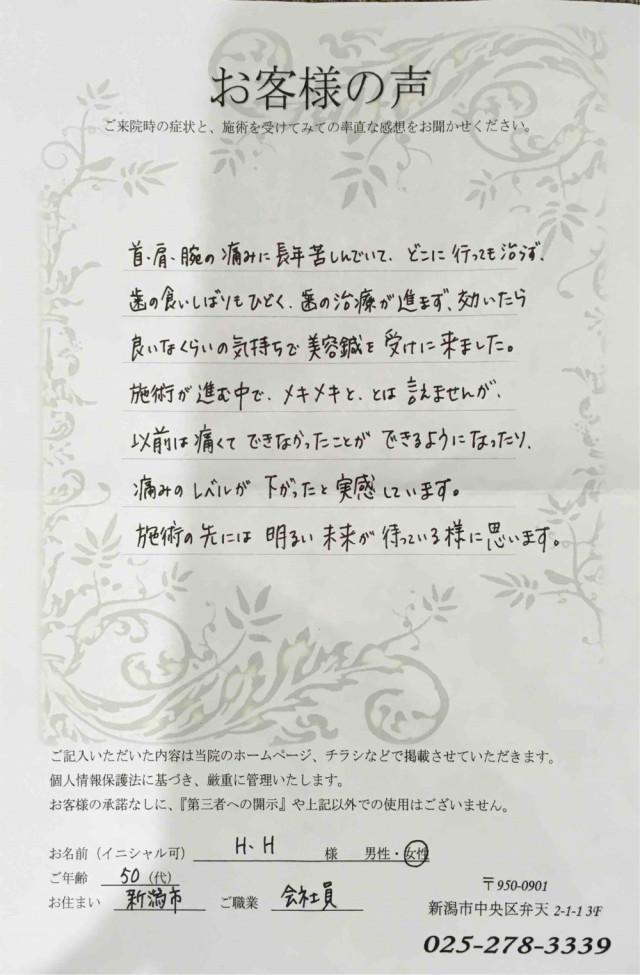 お客様の声
ご来院時の症状と、施術を受けてみての率直な感想をお聞かせください。
首、肩、腕の痛みに長年苦しんでいて、どこに行っても治らず、
歯の食いしばりもひどく、歯の治療が進まず、効いたら
良いなくらいの気持ちで美容鍼を受けに来ました。
施術が進む中で、メキメキと、とは言えませんが、
以前は痛くてできなかったことができるようになったり、
痛みのレベルが下がったと実感しています。
施術の先には明るい未来が待っている様に思います。
ご記入いただいた内容は当院のホームページ、チラシなどで掲載させていただきます。
個人情報保護法に基づき、厳重に管理いたします。
お客様の承諾なしに、『第三者への開示』や上記以外での使用はございません。
お名前（イニシャル可） H、H 様 男性・女性
ご年齢 50（代）
お住まい 新潟市 ご職業 会社員
〒950-0901
新潟市中央区弁天 2-1-1 3F
025-278-3339